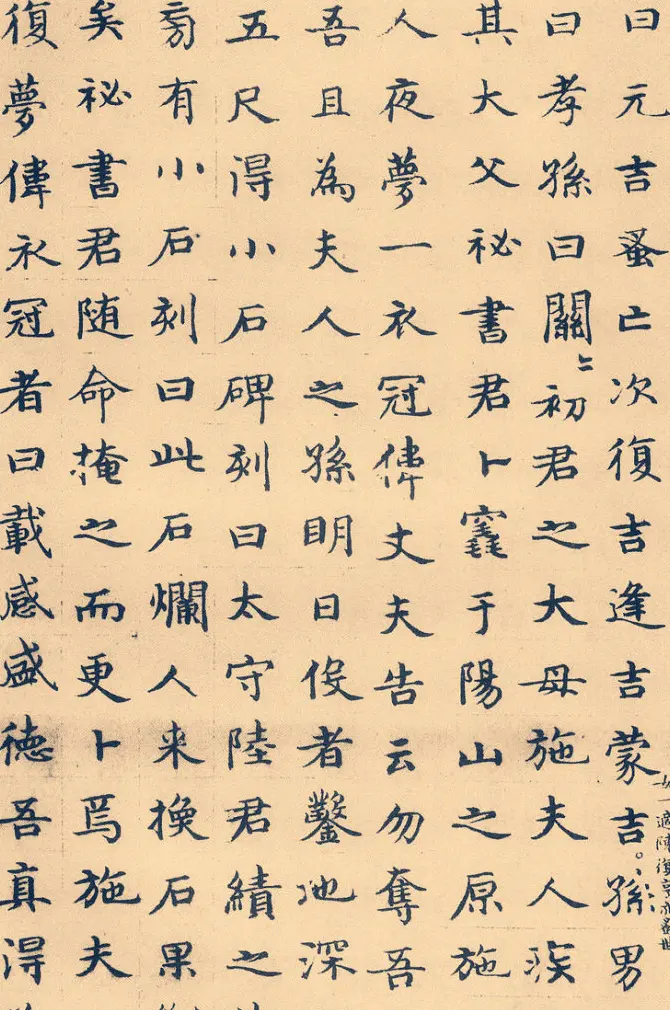 曰元吉蚤亡次復吉逢吉蒙吉孫男
女一適陳復亨亦蚤世
曰孝孫曰關初君之大母施夫人疾
其大父祕書君卜竁于陽山之原施
人夜夢一衣冠偉丈夫告云勿奪吾
吾且為夫人之孫明日役者鑿池深
五尺得小石碑刻曰太守陸君績之
旁有小石刻曰此石爛人来換石果
矣祕書君随命掩之而更卜焉施夫
復夢偉衣冠者曰載感盛德吾真得